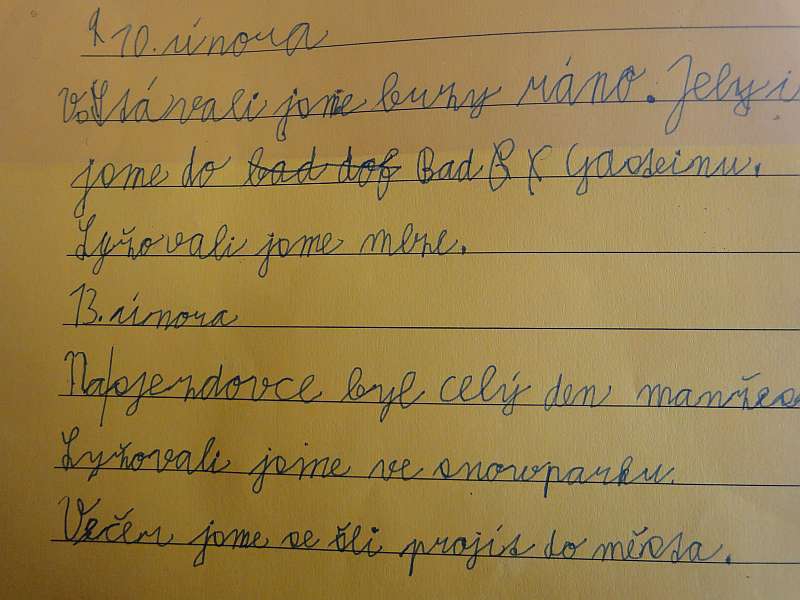 10. února
Vstávali jsme brzy ráno. Jely i
jsme do bad dof Bad Gasteinu.
Lyžovali jsme
13. února
Na sjezdovce byl celý den manžes
Lyžovali jsme ve snowparku.
Večer jsme se šli projít do města.